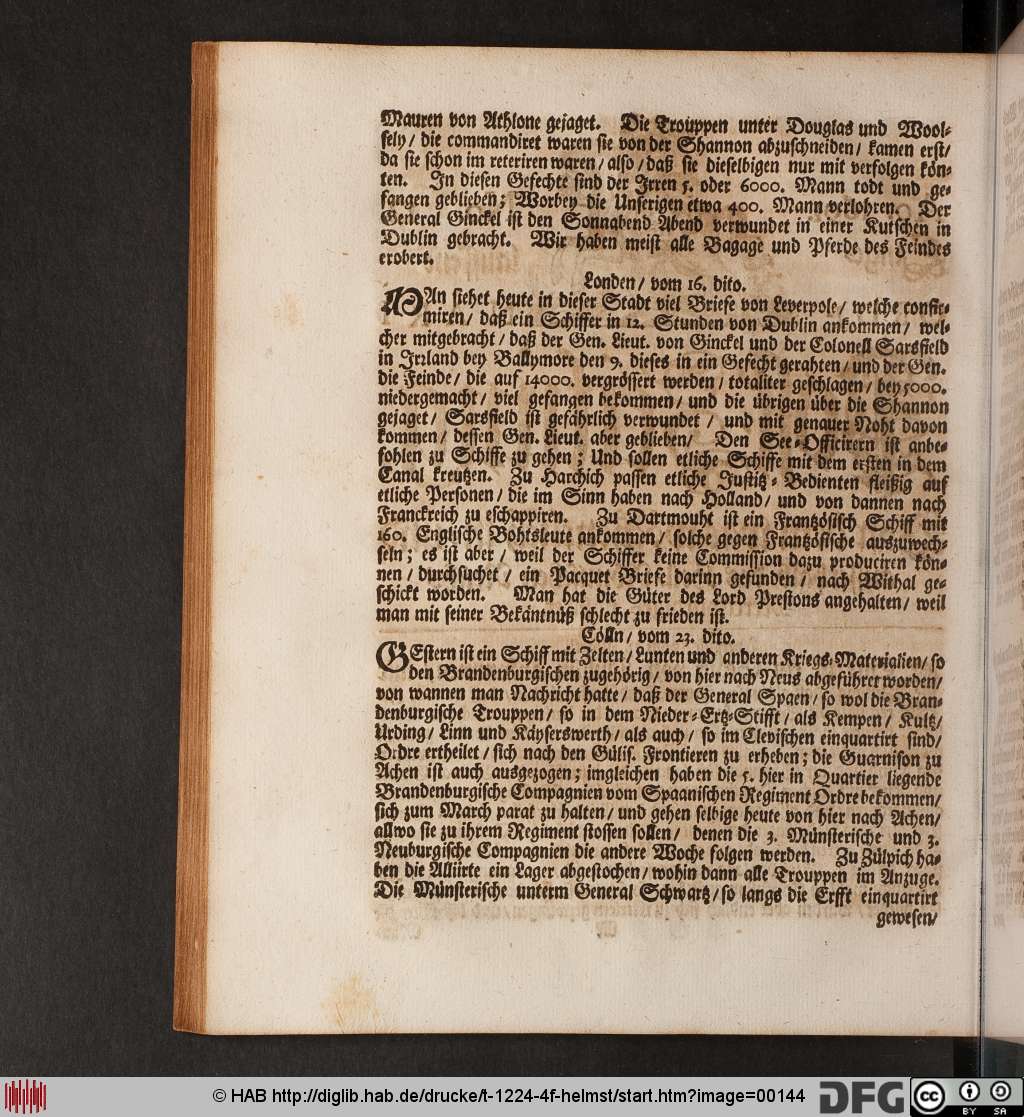 Mauren von Athlone gejaget. Die Trouppen unter Douglas und Wool-
sely / die commandiret waren sie von der Shannon abzuschneiden / kamen erst /
da sie schon im reteriren waren / also / daß sie dieselbigen nur mit verfolgen kön-
ten. In diesen Gefechte sind der Irren 5. oder 6000. Mann todt und ge-
fangen geblieben; Worbey die Unserigen etwa 400. Mann verlohren. Der
General Ginckel ist den Sonnabend Abend verwundet in einer Kutschen in
Dublin gebracht. Wir haben meist alle Bagage und Pferde des Feindes
erobert.
Londen / vom 16. dito.
MAn siehet heute in dieser Stadt viel Briefe von Leverpole / welche confir-
miren / daß ein Schiffer in 12. Stunden von Dublin ankommen / wel-
cher mitgebracht / daß der Gen. Lieut. von Ginckel und der Colonell Sarsfield
in Irzland bey Ballymore den 9. dieses in ein Gefecht gerahten / und der Gen.
die Feinde / die auf 14000. vergrössert werden / totaliter geschlagen / bey 5000.
niedergemacht / viel gefangen bekommen / und die übrigen über die Shannon
gejaget / Sarsfield ist gefährlich verwundet / und mit genauer Noht davon
kommen / dessen Gen. Lieut. aber geblieben / Den See-Officirern ist anbe-
fohlen zu Schiffe zu gehen; Und sollen etliche Schiffe mit dem ersten in dem
Canal kreutzen. Zu Harchich passen etliche Justitz-Bedienten fleißig auf
etliche Personen / die im Sinn haben nach Holland / und von dannen nach
Franckreich zu eschappiren. Zu Dartmouht ist ein Frantzösisch Schiff mit
160. Englische Bohtsleute ankommen / solche gegen Frantzösische auszuwech-
seln; es ist aber / weil der Schiffer keine Commission dazu produciren kön-
nen / durchsuchet / ein Pacquet Briefe darinn gefunden / nach Withal ge-
schickt worden. Man hat die Güter des Lord Prestons angehalten / weil
man mit seiner Bekäntnüß schlecht zu frieden ist.
Cölln / vom 23. dito.
GEstern ist ein Schiff mit Zelten / Lunten und anderen Kriegs-Materialien / so
den Brandenburgischen zugehörig / von hier nach Neus abgeführet worden /
von wannen man Nachricht hatte / daß der General Spaen / so wol die Bran-
denburgische Trouppen / so in dem Nieder-Ertz-Stifft / als Kempen / Kultz /
Urding / Linn und Käyserswerth / als auch / so im Clevischen einquartirt sind /
Ordre ertheilet / sich nach den Gülis. Frontieren zu erheben; die Guarnison zu
Achen ist auch ausgezogen; imgleichen haben die 5. hier in Quartier liegende
Brandenburgische Compagnien vom Spaanischen Regiment Ordre bekommen /
sich zum March parat zu halten / und gehen selbige heute von hier nach Achen /
allwo sie zu ihrem Regiment stossen sollen / denen die 3. Münsterische und 3.
Neuburgische Compagnien die andere Woche folgen werden. Zu Zülpich ha-
ben die Alliirte ein Lager abgestochen / wohin dann alle Trouppen im Anzuge.
Die Münsterische unterm General Schwartz / so langs die Erfft einquartirt
gewesen /
© HAB http://diglib.hab.de/drucke/t-1224-4f-helmst/start.htm?image=00144
DFG
cc BY SA